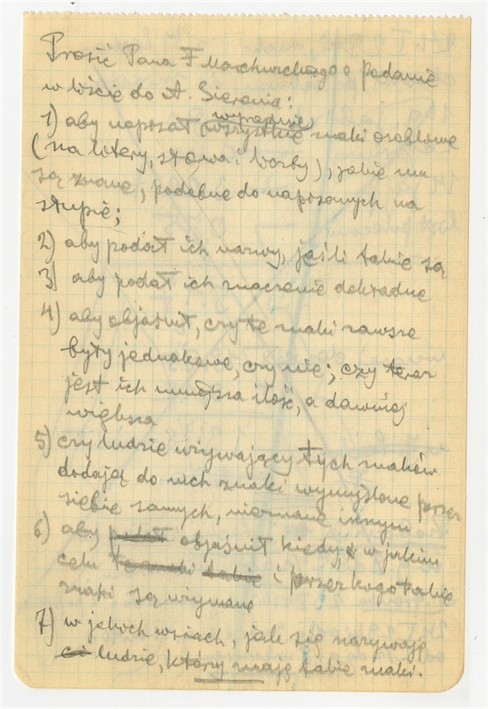 Prosić Pana F Marchwickiego o podanie
w liście do A. Sierania:
wyraźnie
1) aby napisał wszystkie znaki osobowe
(na litery, słowa i liczby), jakie mu
są znane, podobne do napisanych na
słupie;
2) aby podał ich nazwy, jeśli takie są
3) aby podał ich znaczenie dokładne
4) aby objaśnił, czy te znaki zawsze
były jednakowe, czy nie; czy teraz
jest ich mniejsza ilość, a dawniej
większa
5) czy ludzie używający tych znaków
dodają do nich znaki wymyślone przez
siebie samych, nieznane innym
6) aby podał objaśnił kiedy, w jakim
celu te znaki takie i przez kogo takie
znaki są używane
7) w jakich wsiach, jak się nazywają
ci ludzie, którzy mają takie znaki.